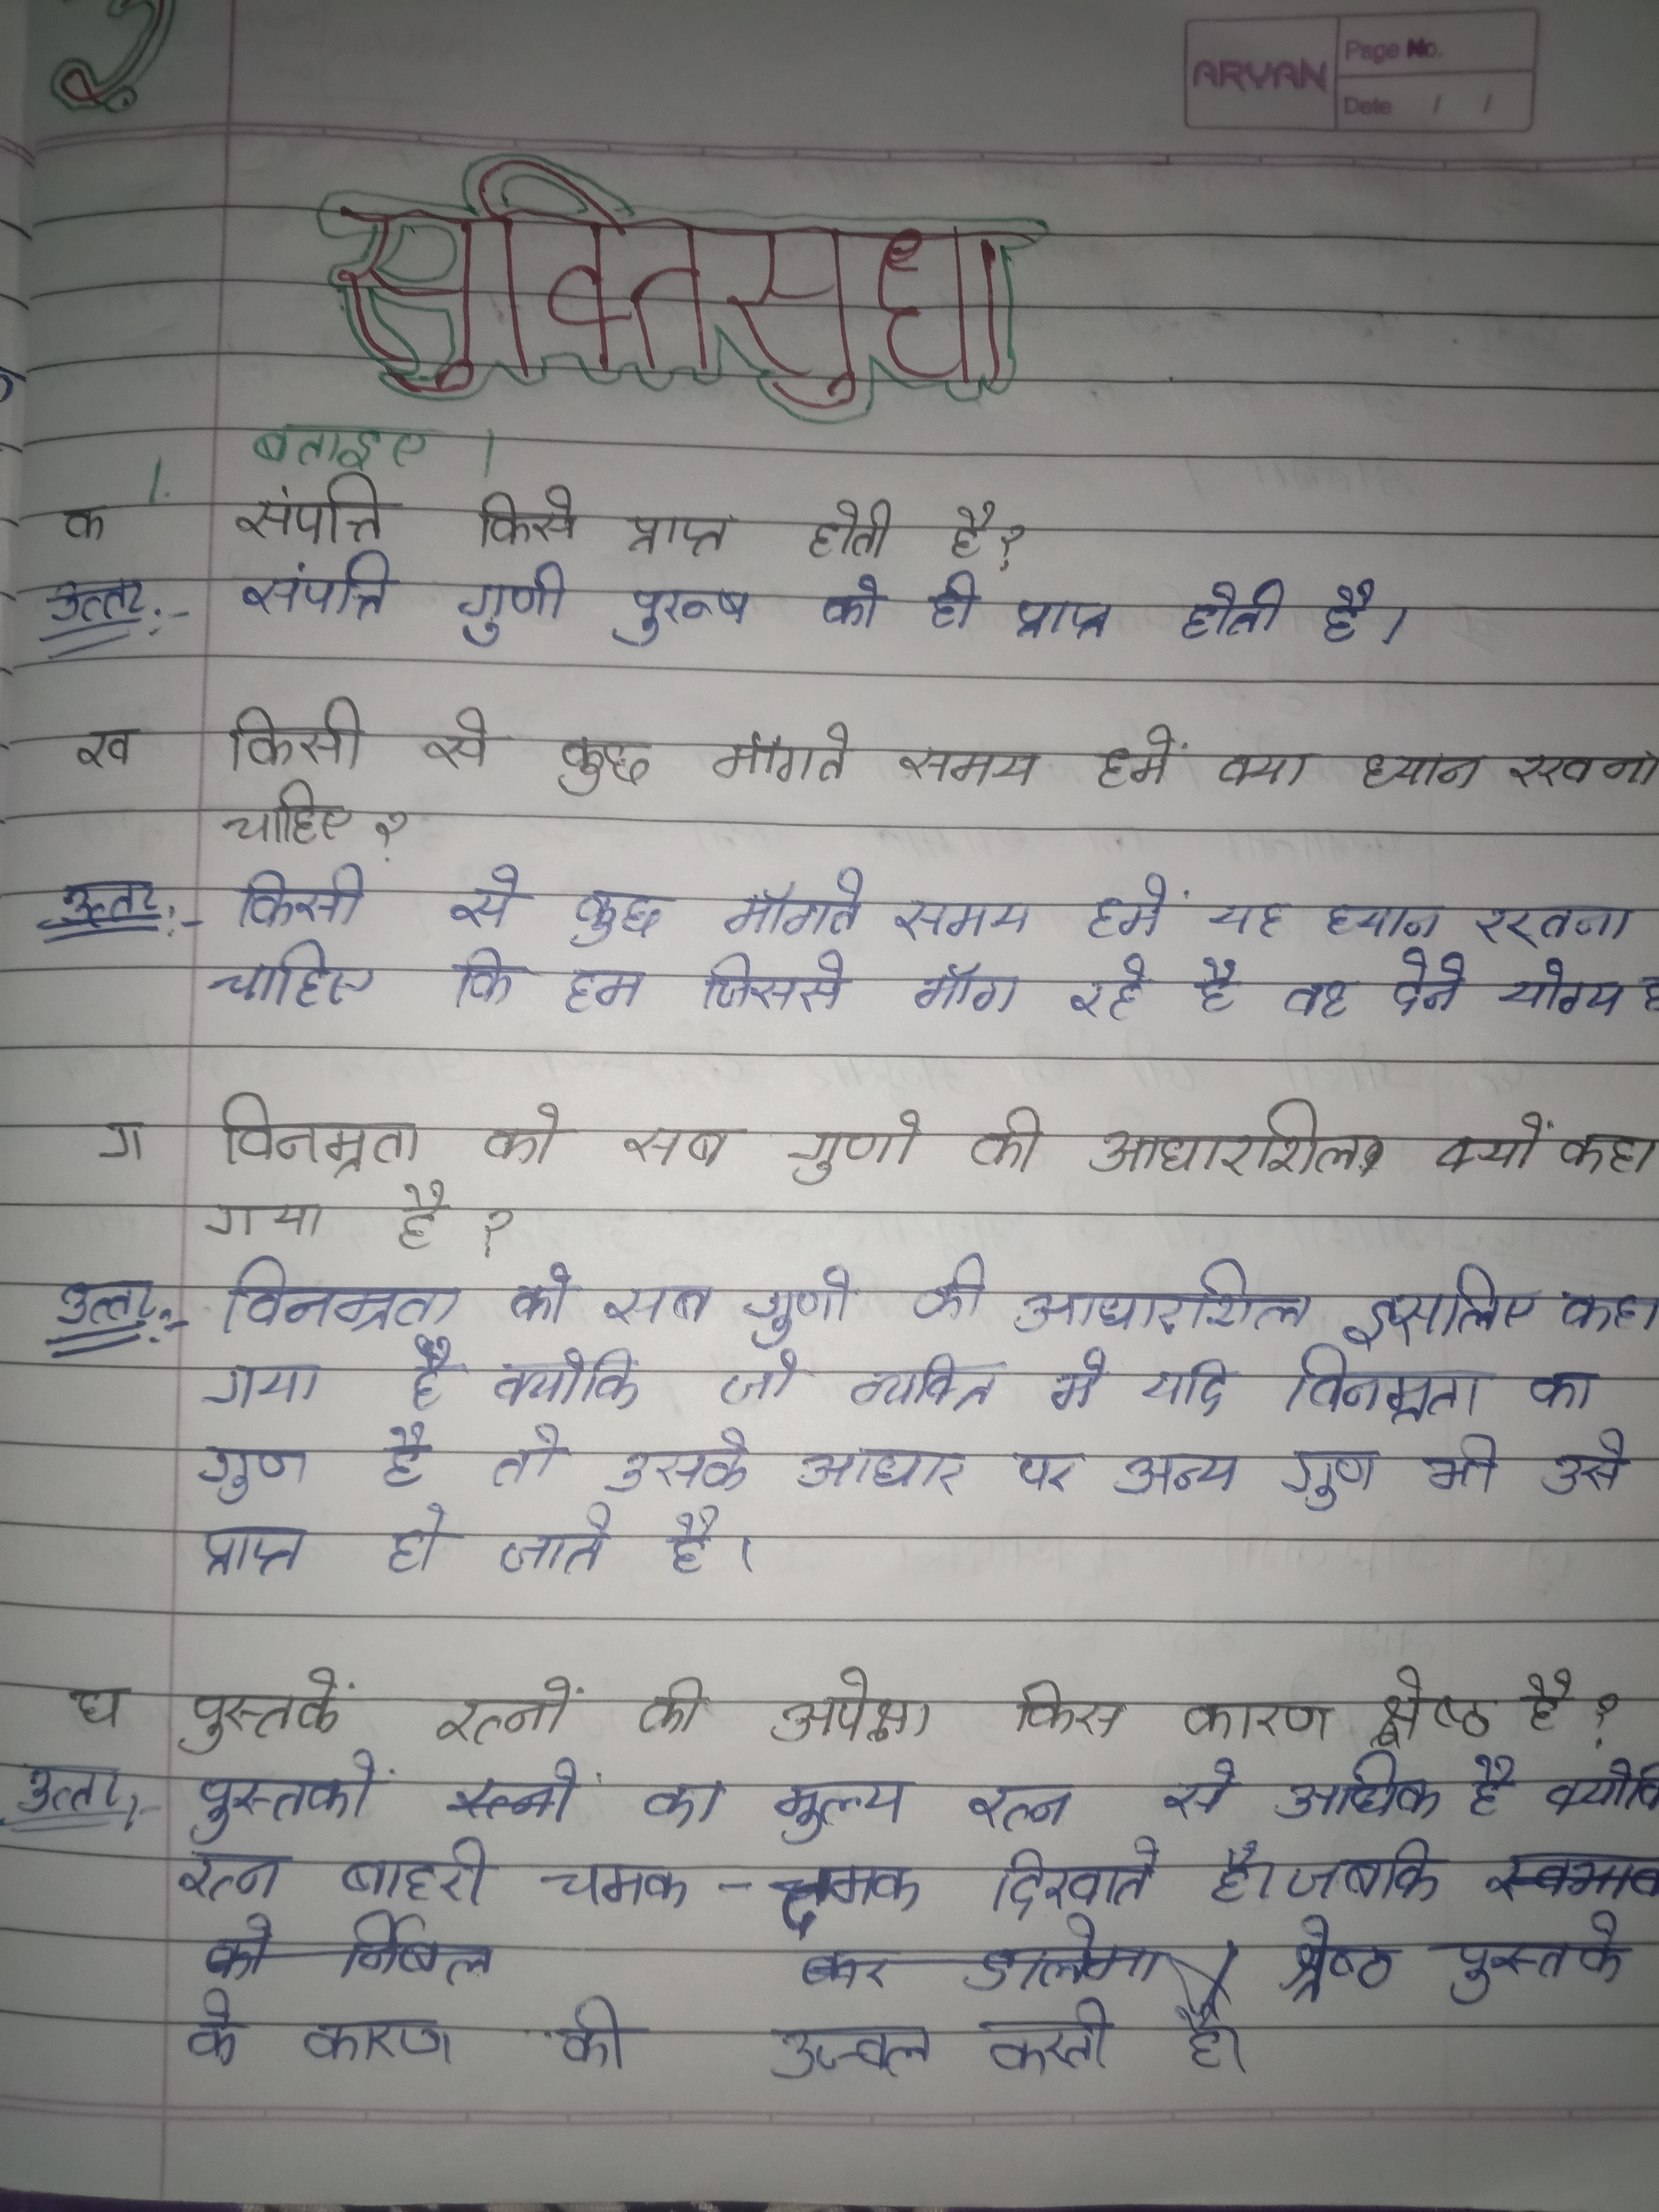 ARYAN
Page No.
Date / /
सुक्तिसुधा
1. बताइए ।
क संपत्ति किसे प्राप्त होती है?
उत्तर:- संपत्ति गुणी पुरूष को ही प्राप्त होती है।
ख किसी से कुछ माँगते समय हमें क्या ध्यान रखना
चाहिए ?
उत्तर:- किसी से कुछ माँगते समय हमें यह ध्यान रखना
चाहिए कि हम जिससे माँग रहे है वह देने योग्य
ग विनम्रता को सब गुणो की आधारशिला क्यों कहा
गया है ?
उत्तर:- विनम्रता को सब गुणो की आधारशिल इसलिए कहा
गया है क्योकि जो व्यक्ति मे यदि विनम्रता का
गुण है तो उसके आधार पर अन्य गुण भी उसे
प्राप्त हो जाते है।
घ पुस्तकें रत्नों की अपेक्षा किस कारण श्रेष्ठ है ?
उत्तर:- पुस्तकों रत्नों का मुल्य रत्न से अधिक है
रत्न बाहरी चमक - दमक दिखाते है। जबकि स्वभाव
को निर्बल कर डालेगा श्रेष्ठ पुस्तके
के कारण की उज्वल करती है।